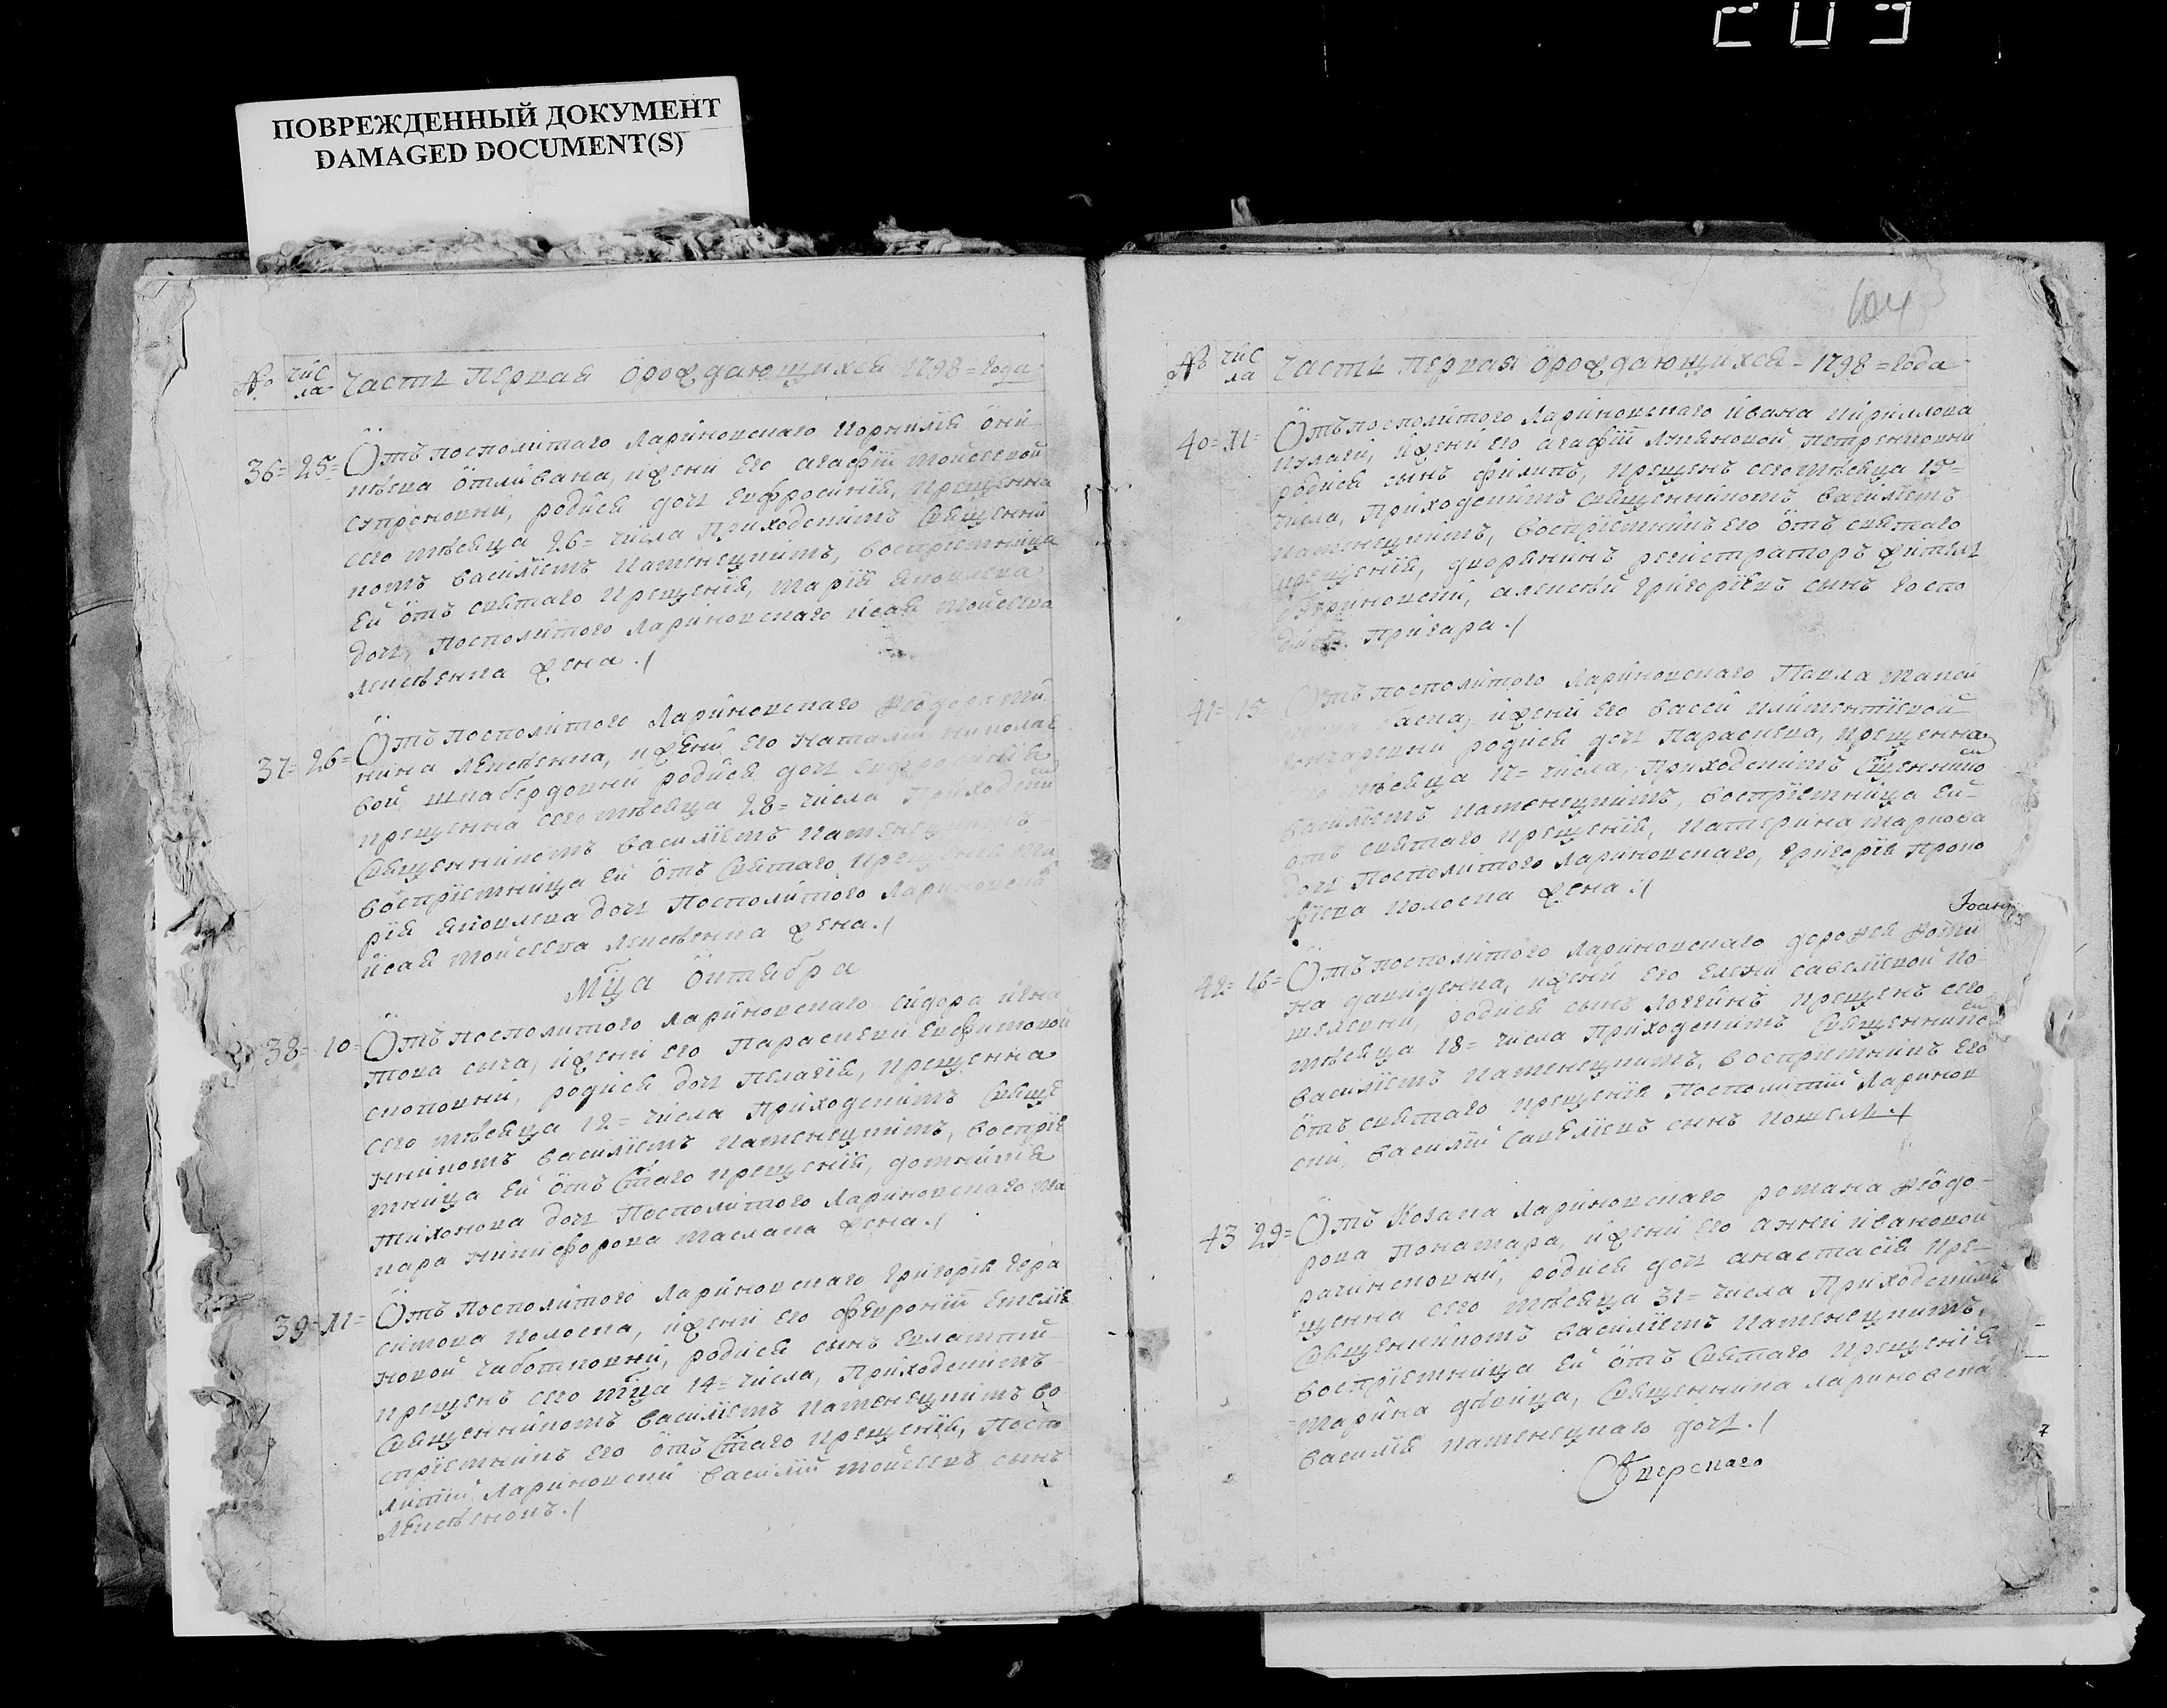 203
ПОВРЕЖДЕННЫЙ ДОКУМЕНТ
DAMAGED DOCUMENT(S)
№ чис ла Часть Первая о рождающихся 1798 = года
36 = 25 = Отъ посполитаго Лариновскаго Корнилія
Отливана, и жени его Агафіи Мойсеевой
родися дочь Евфросинія, крещенна
сего мѣсяца 26 = числа Приходскимъ Священни
комъ Василіемъ Каменецкимъ, воспріемница
ей отъ святаго крещенія, Марія Яковлева
дочь, Посполитого Лариновскаго Исая Мойсеева
Лексѣенка жена ./
37 = 26 = Отъ посполитого Лариновскаго Ѳеодора Ми
нина Лексѣенка, и жени его Наталіи Николае
вой, родися дочь Евфросинія
крещенна сего мѣсяца 28 = числа Приходским
Священникомъ Василіемъ Каменецкимъ
воспріемница ей отъ Святаго крещенія Ма
рія Яковлева дочь Посполитого Лариновска
Исая Мойсеева Лексѣенка жена ./
Мца Октября
38 = 10 = Отъ посполитого Лариновскаго Сидора Игна
това Сича, и жени его Параскеви Евфимовой
родися дочь Пелагія, крещенна
сего мѣсяца 12 = числа Приходскимъ Свяще
нникомъ Василіемъ Каменецкимъ, воспріе
мница ей отъ Стаго крещенія, Домникія
Тихонова дочь Посполитого Лариновскаго Ма
кара Никифорова Маслака жена ./
39 = 11 = Отъ Посполитого Лариновскаго Григорія Гера
симова Колоска, и жени его Февроніи Емелія
новой Чаботковни, родися сынъ Евлампій
крещенъ сего мца 14 = числа, Приходскимъ
Священникомъ Василіемъ Каменецкимъ во
спріемникъ его отъ Стаго крещенія, Поспо
литій Лариновскій Василій Мойсеевъ сынъ
Лексѣенокъ ./
№ чис ла Часть Первая о рождающихся - 1798 = года
40 = 11 = Отъ посполитого Лариновскаго Ивана Кирилова
Кулаги, и жени его Агафіи Лукяновой Петренковни
родися сынъ Филипъ, крещенъ сего мѣсяца 15 =
числа, Приходскимъ Священникомъ Василіемъ
Каменецкимъ, воспріемникъ его отъ святаго
крещенія, дворянинъ регистраторъ житель
Лариновскій, Алексѣй Григоріевъ сынъ госпо
Пригара ./
41 = 15 Отъ посполитого Лариновскаго Павла
и жени его Васси Климентіевой
Гончаревни родися дочь Параскева, крещенна
мѣсяца 17 = числа, Приходскимъ Сщенико
Василіемъ Каменецкимъ, воспріемница ей
отъ святаго крещенія, Катерина Маркова
дочь Посполитого Лариновскаго, Григорія Проко
фіева Колоска жена ./
42 = 16 = Отъ посполитого Лариновскаго Дорофея Фоми
на Давиденка, и жени его Елени Савеліевой Ко
шелевни, родися сынъ Логгинъ крещенъ сего
мѣсяца 18 = числа Приходскимъ Священнико
Василіемъ Каменецкимъ, воспріемникъ его
отъ святаго крещенія Посполитій Ларинов
скій, Василій Савеліевъ сынъ Кошель ./
43 29 = Отъ Козака Лариновскаго Романа Ѳеодо-
рова Понамара, и жени его Анни Ивановой
родися дочь Анастасія кре-
щенна сего мѣсяца 31 = числа Приходскимъ
Священникомъ Василіемъ Каменецкимъ,
воспріемница ей отъ Святаго крещенія
Марина дѣвица, Священника Лариновска
Василія Каменецкаго дочь ./